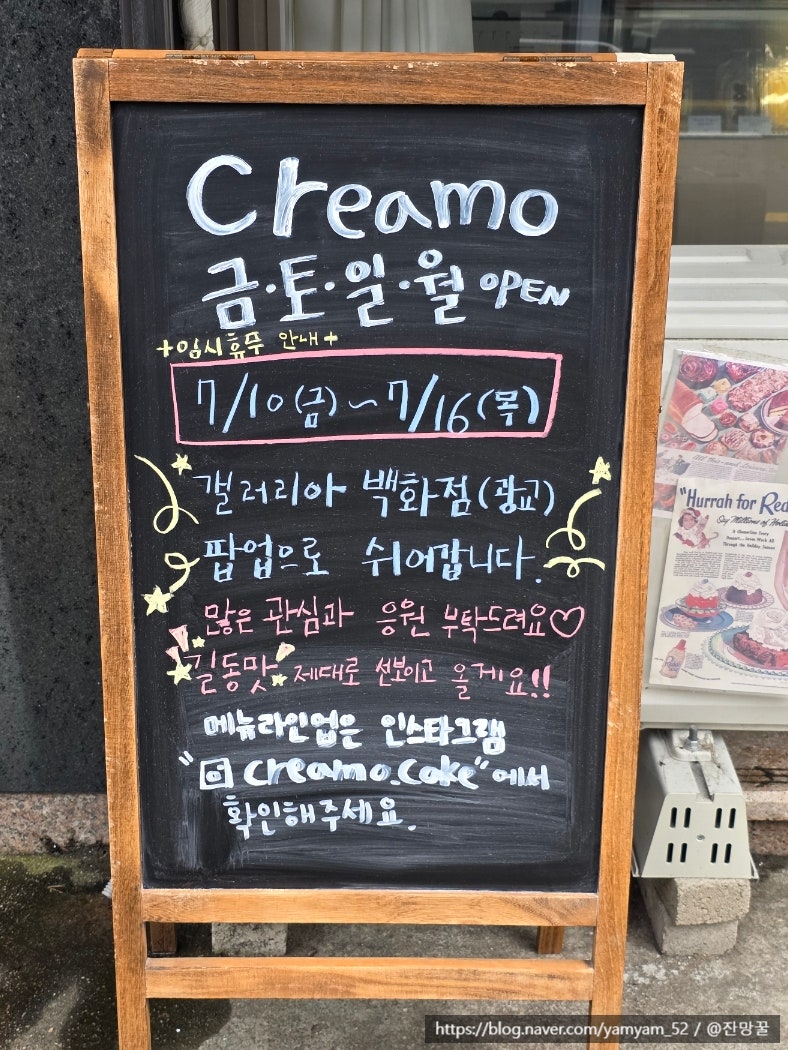 Creamo
금·토·일·월 OPEN
+임시휴무 안내+
7/10(금)~7/16(목)
갤러리아 백화점(광교)
팝업으로 쉬어갑니다.
많은 관심과 응원 부탁드려요♡
길동맛 제대로 선보이고 올게요!!
메뉴라인업은 인스타그램
"creamo.cake"에서
확인해주세요.
"Hurrah for Red
https://blog.naver.com/yamyam_52 / @잔망꿀